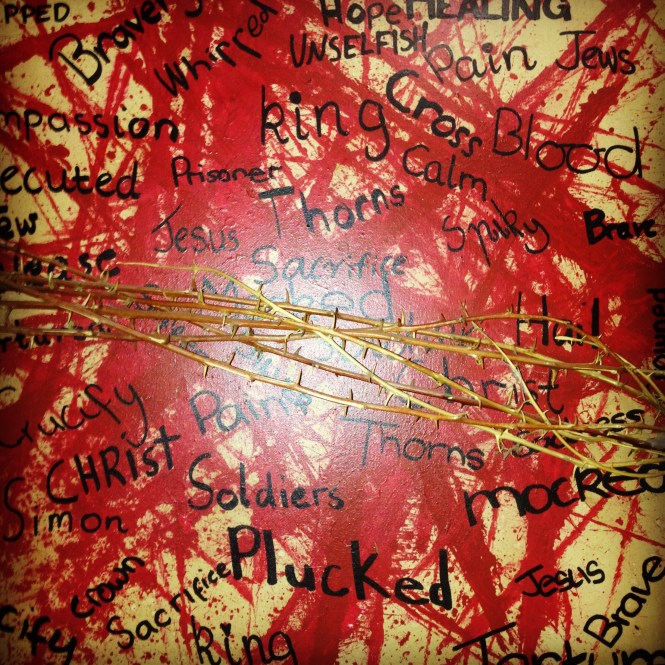 PPED
Bravery
Whipped
Hope HEALING
UNSELFISH
Pain Jews
mpassion
King
Cross
Blood
Calm
ecuted
Prisoner
Thorns
Spiky
Brave
ew
Jesus
Sacrifice
Mocked
Hail
Christ
Crucify
Pain
Thorns
CHRIST
Soldiers
mocked
Simon
Plucked
Jesus
crown
Sacrifice
Brave
cify
King